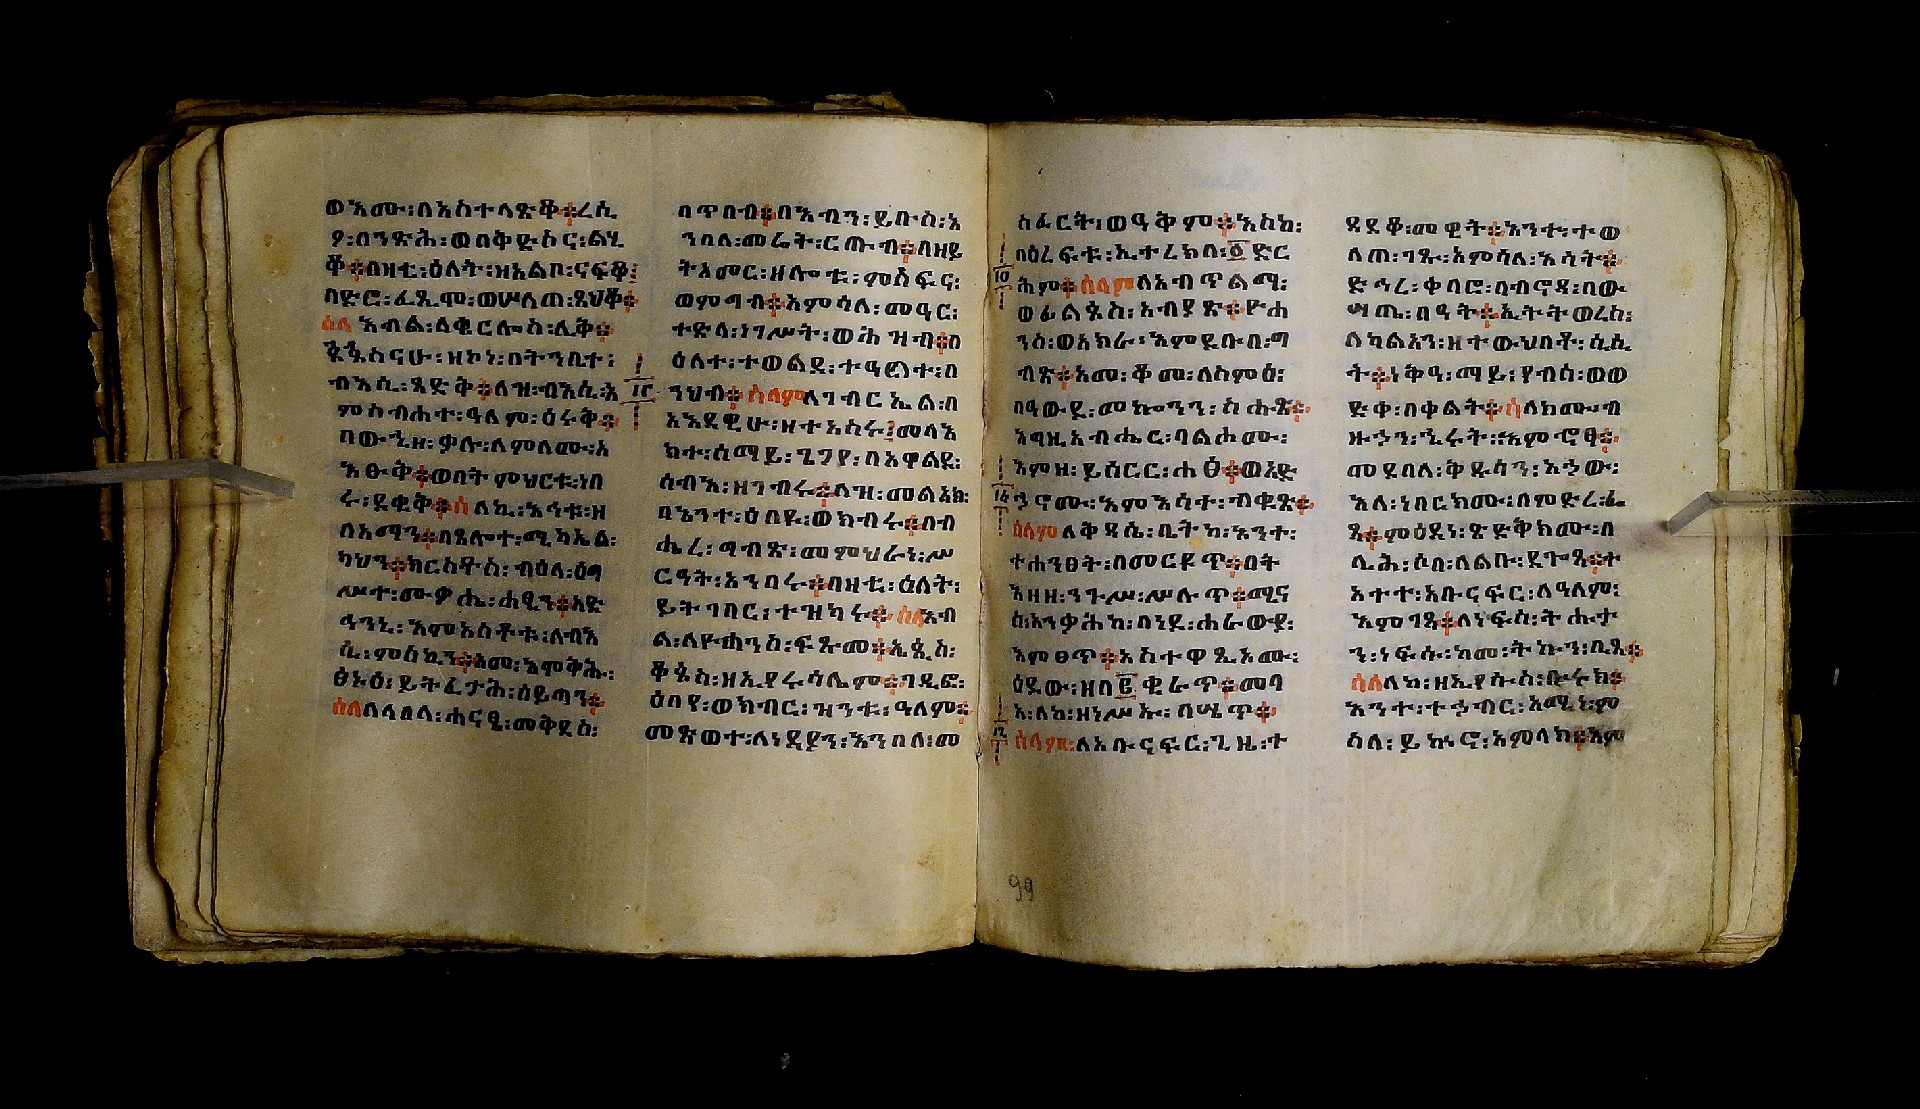 ወእሙ፡በአስተላጽቆ፨ረሲ
ዖ፡በንጽሕ፡ወበቅድስና፡ልሂ
ቆ፨በዛቲ፡ዕለት፡ዘአልቦ፡ናፍቆ፨
በድሮ፡ወሠለጠ፡
ሰላ እብል፡ለቂርሎስ፡ሊቅ፨
ጳጳስናሁ፡ዘኮነ፡በትንቢተ፡
ብእሲ፡ጻድቅ፨ለዝ፡ብእሲ፡እ
ምስብሐተ፡ዓለም፡ዕሩቅ፨
በውኂዘ፡ቃሉ፡ለምለሙ፡አ
ዕፁቅ፨ወበትምህርቱ፡ነበ
ሩ፡ደቂቅ፨ሰ ለኪ፡እኅቱ፡ዘ
በአማን፨በጸሎተ፡ሚካኤል፡
ካህን፨ክርስቶስ፡ብዕለ፡ዕግ
ሥተ፡ሙቃሔ፡ሐፂን፨አድ
ኅንኒ፡እምአስቶቱ፡ለብእ
ሲ፡ምስኪን፨አመ፡አምቅሑ፡
ፅኑዕ፡ይትፈታሕ፡ሰይጣን፨
ሰለ ለላዕለ፡ሐናፂ፡መቅደስ፡
በጥበብ፨በእብን፡ይቡስ፡እ
ንበለ፡መሬት፡ርጡብ፨በዘይ
ትአመር፡ዘሎቱ፡ምስፍና፡
ወምግብ፨አምሳለ፡መዓር፡
ተድላ፡ነገሥት፡ወሕዝብ፨በ
ዕለተ፡ተወልደ፡ተዓየነተ፡በ
ንህብ፨ሰላም ለገብርኤል፡በ
አእደዊሁ፡ዘተአስሩ፡መላእ
ክተ፡ሰማይ፡ጌገየ፡በአዋልደ፡
ሰብእ፡ዘገብሩ፨ለዝ፡መልአክ፡
በእንተ፡ዕበዩ፡ወክብሩ፨በብ
ሔረ፡ግብጽ፡መምህራነ፡ሥ
ርዓት፡አንበሩ፨በዛቲ፡ዕለት፡
ይትገበር፡ተዝካሩ፨ሰላ እብ
ል፡ለዮሐንስ፡ፍጹመ፨ኤጲስ፡
ቆጶስ፡ዘኢየሩሳሌም፨ባዲፎ፡
ዕበየ፡ወክብር፡ዝንቱ፡ዓለም፨
መጽወተ፡ለነዳያን፡እንበለ፡መ
ስፈርት፡ወዓቅም፨እስከ፡
በዕረፍቱ፡ኢተረክበ፡፩ድር
ሕም፨ሰላም ለአብጥልማ፡
ወፊልጶስ፡አብያጽ፨ዮሐ
ንስ፡ወአክራ፡እምደቡበ፡ግ
ብጽ፨አመ፡ቆሙ፡ለስምዕ፡
በዓውደ፡መኰንን፡ስሑጽ፨
እግዚአብሔር፡ባልሖሙ፡
እምዘ፡ይሰርር፡ሐፅ፨ወአድ
ኃኖሙ፡እምእሳተ፡ብቁጽ፨
ሰላም ለቅዳሴ፡ቤትከ፡እንተ፡
ተሐንፀት፡በመርዩጥ፨በት
እዛዘ፡ንጉሥ፡ሥሉጥ፨ሚና
ስ፡አንቃሕከ፡በነደ፡ሐራውያ፡
እምፀጥ፨አስተዋጺአሙ፡
ዕደው፡ዘበ፪ቂራጥ፨መባ
አ፡ለከ፡ዘነሥኡ፡በሤጥ፨
ሰላም፡ለአቡናፍር፡ጊዜ፡ተ
ዳደቆ፡መዊት፨እንተ፡ተወ
ለጠ፡ገጹ፡አምሳለ፡እሳት፨
ድኅረ፡ቀባሮ፡በብኖዳ፡በው
ሣጤ፡በዓት፨ኢትትወረስ፡
ለካልአን፡ዘተውህበቶ፡ሲሲ
ት፨ነቅዓ፡ማይ፡የብሰ፡ወወ
ድቀ፡በቀልት፨ሰ ለክሙ፡ብ
ዙኃን፡ኄራት፡እምኖፃ፨
መደበለ፡ቅዱሳን፡አኃው፡
እለ፡ነበርክሙ፡በምድረ፡ፈ
ጼ፨ምዕደነ፡ጽድቅክሙ፡በ
ሊሕ፡ሶበ፡ለልቡ፡ደጐጸ፨ተ
አተተ፡አቡናፍር፡ለዓለም፡
እምገጹ፨ለነፍስ፡ትሑታ
ን፡ነፍሱ፡ከመ፡ትኩን፡ቤጸ፨
ሰላ ለከ፡ዘኢየሱስ፡ቡሩክ፨
እንተ፡ተኃብር፡አሚነ፡ም
ስለ፡ይኩኖ፡አምላክ፨እም
99